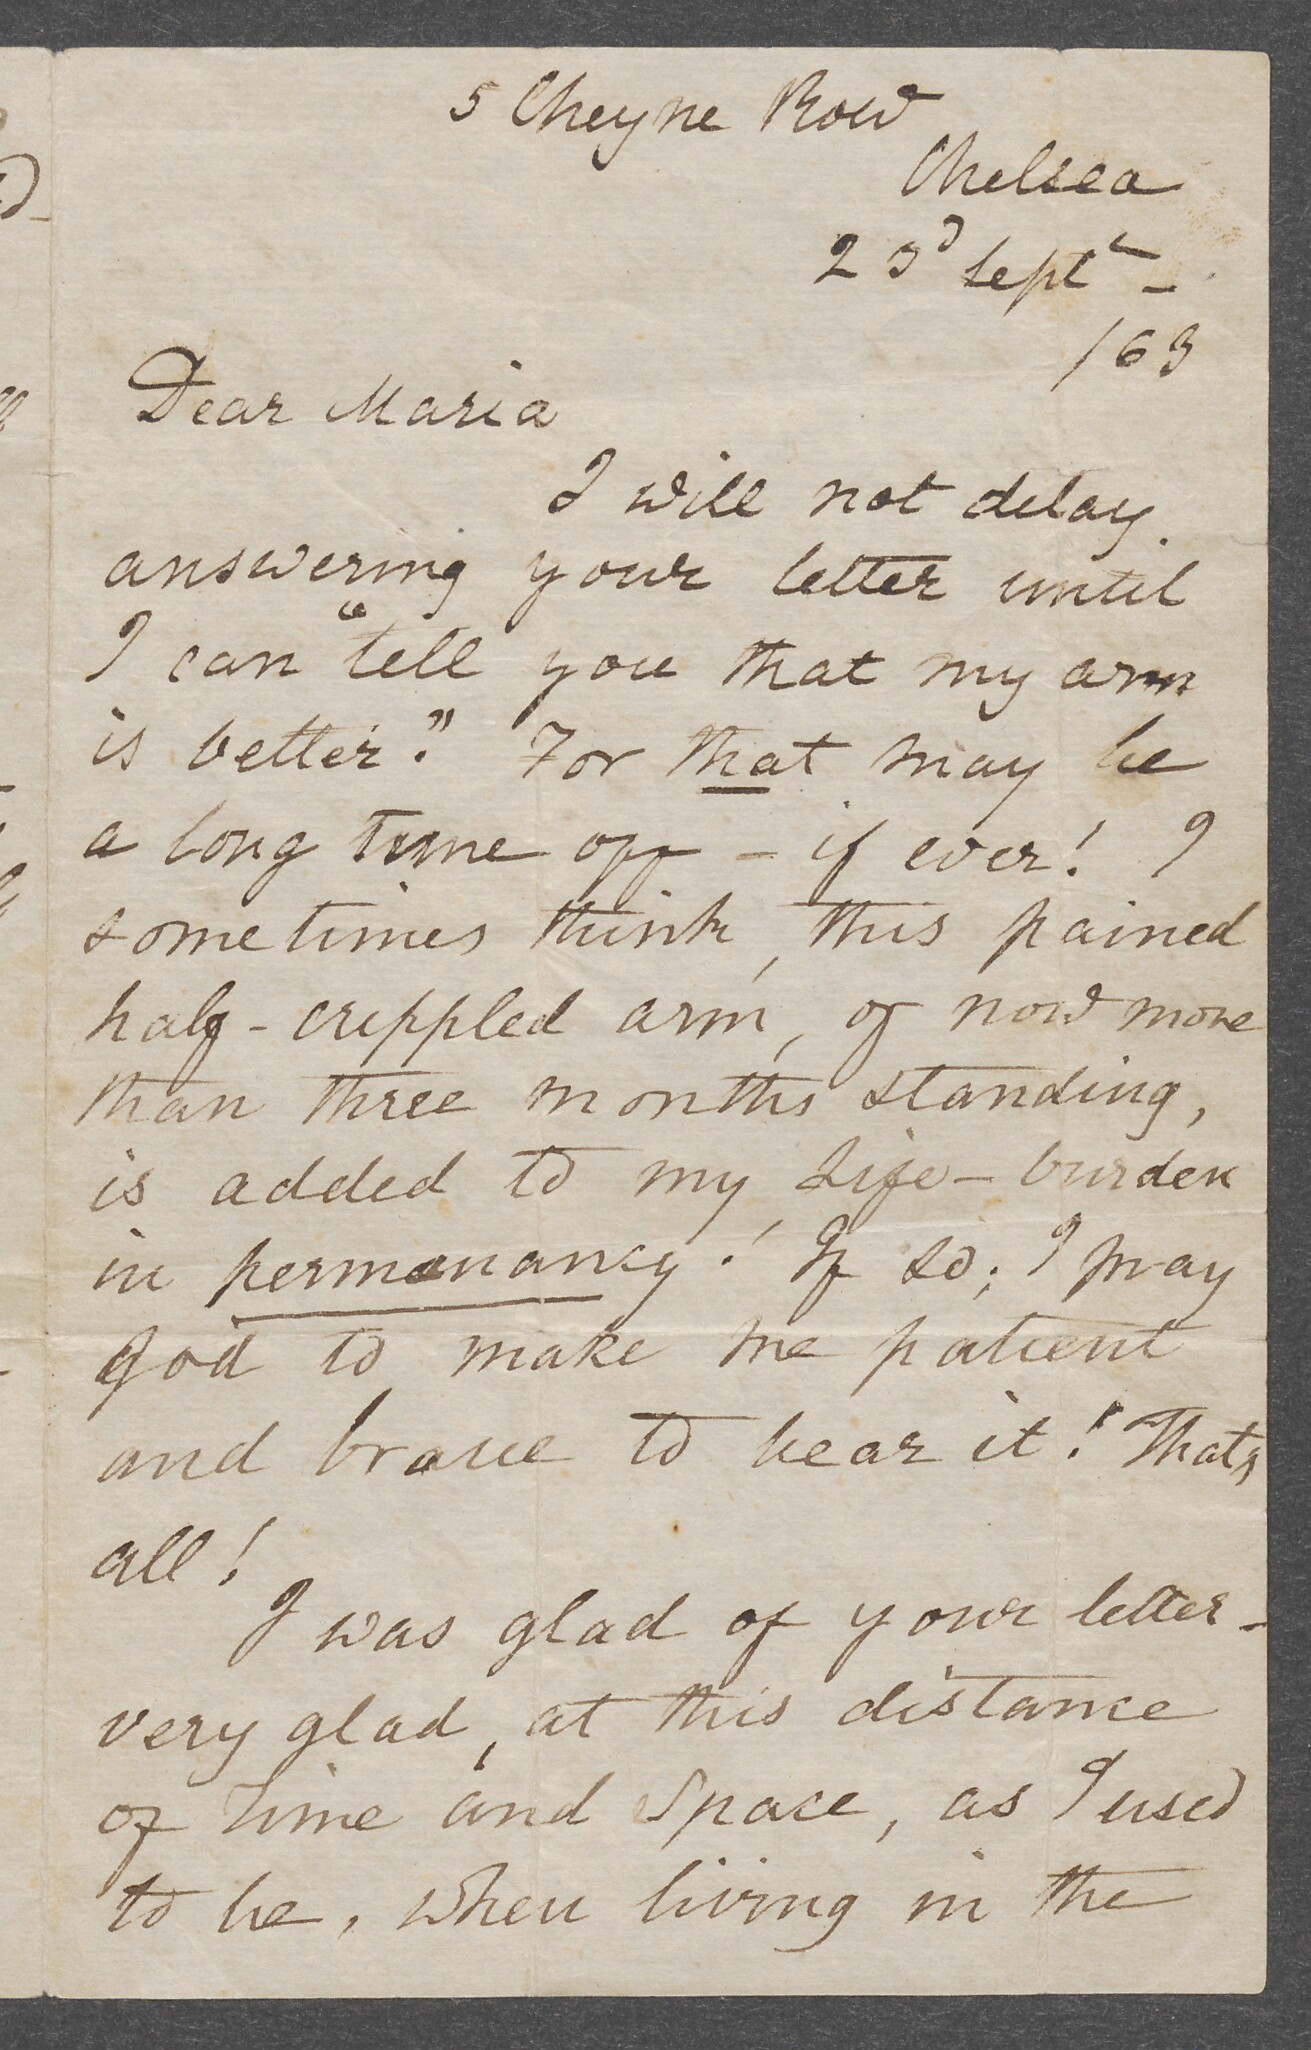 5 Cheyne Row
Chelsea
23d Sept -
/63
Dear Maria
I will not delay
answering your letter until
I can "tell you that my arm
is better". For that may be
a long time off - if ever! I
sometimes think, this pained
half-crippled arm, of now more
than three months standing,
is added to my Life-burden
in permanancy! If so; I pray
God to make me patient
and brave to bear it! Thats
all!
I was glad of your letter -
very glad, at this distance
of Time and Space, as I used
to be, when living in the